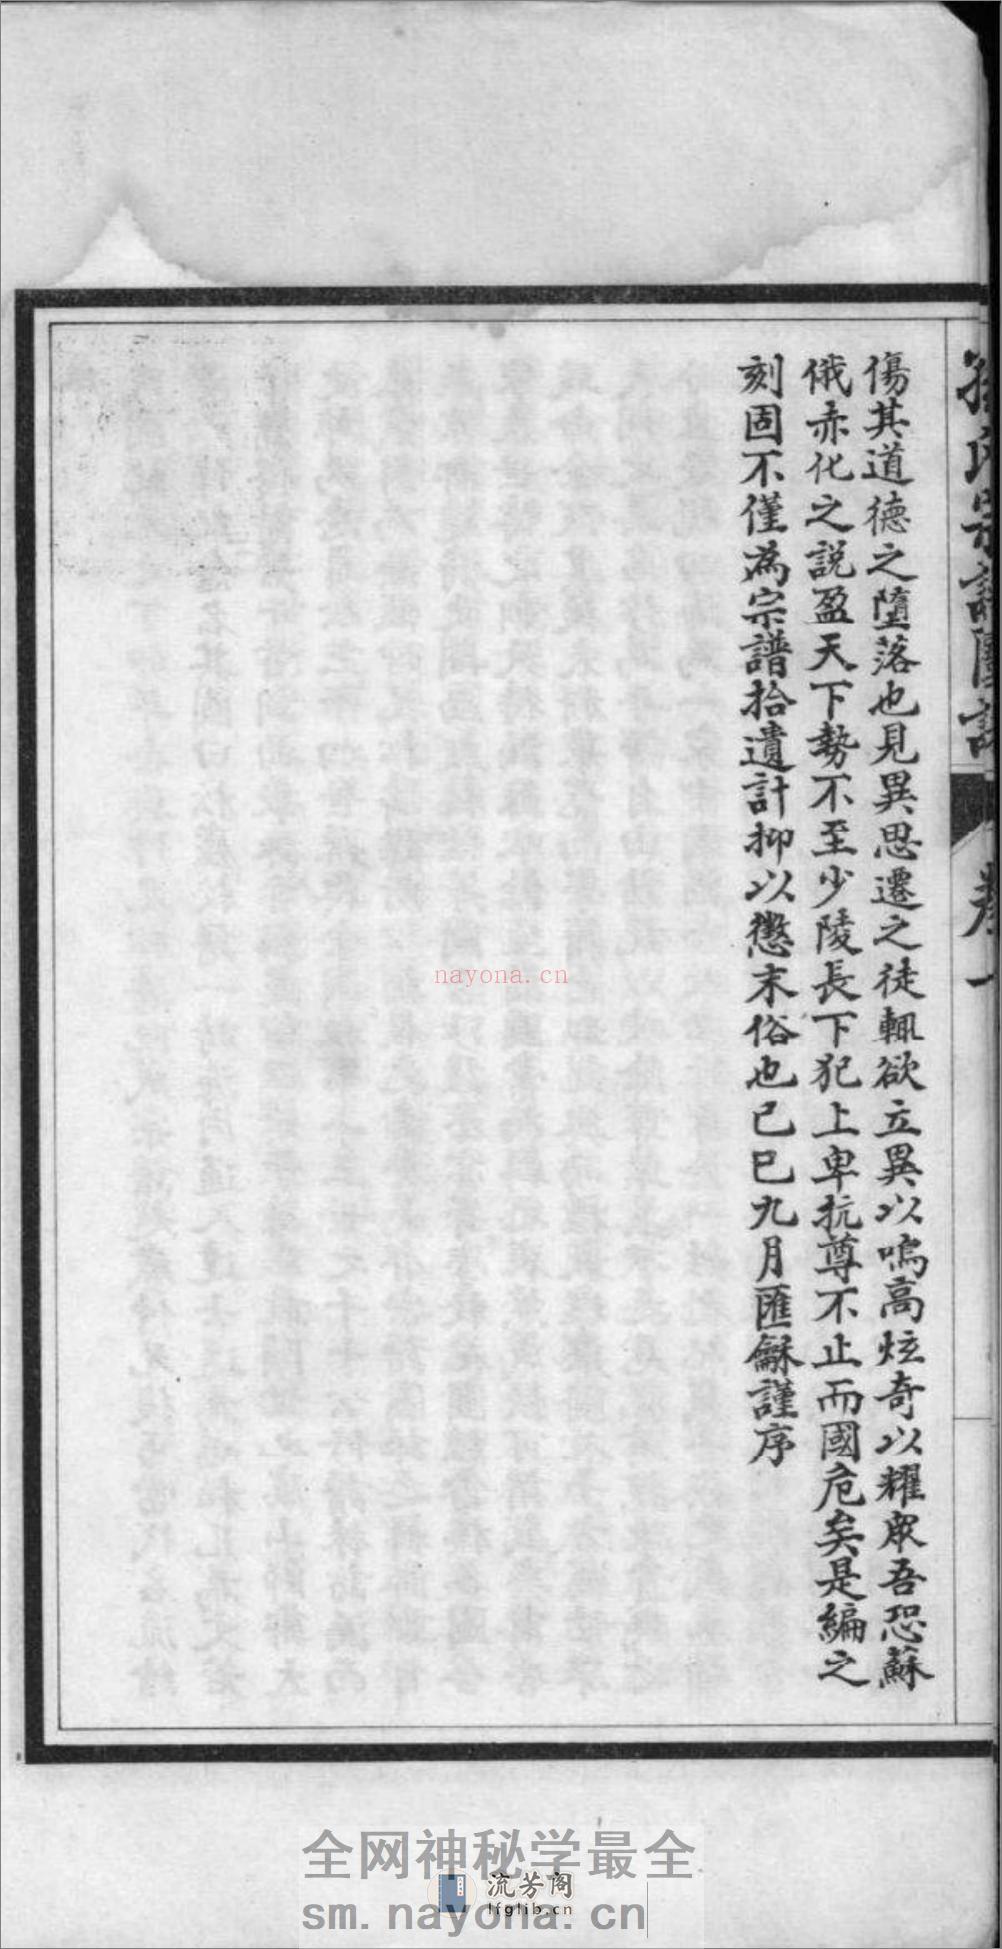 傷其道德之墮落也見異思遷之徒輒欲立異以鳴高炫奇以耀衆吾恐蘇
俄赤化之説盈天下勢不至少陵長下犯上卑抗尊不止而國危矣是編之
刻固不僅為宗譜拾遺計抑以懲末俗也己巳九月匯龢謹序
卷一
nayona.cn
全网神秘学最全
流芳阁
lfglib.cn
sm.nayona.cn